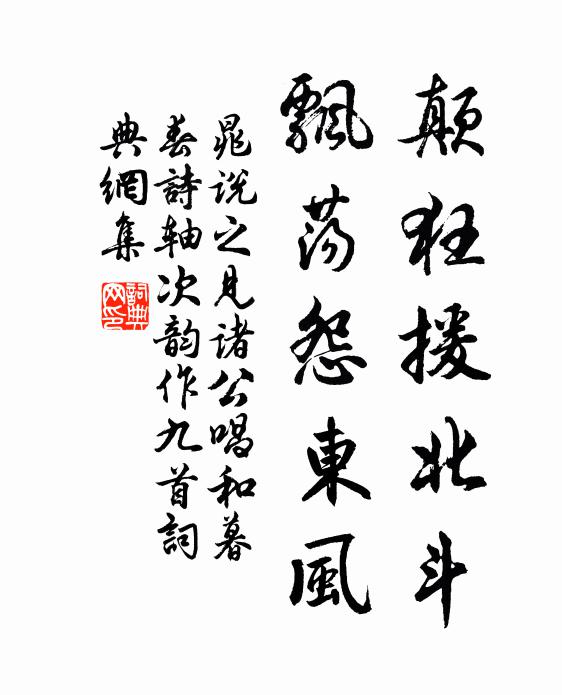 顛狂援北斗
飄蕩怨東風
晁說之見諸公唱和暮
春詩軸次韵作九首詞
典網集
詞典網印